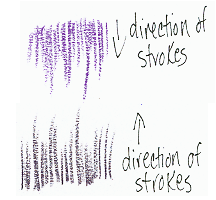 direction of
strokes
direction of
strokes